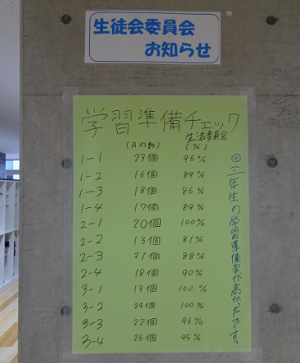 生徒会委員会
お知らせ
学習準備チェック
生活委員会
(Aの数) (%)
1-1 23個 96%
1-2 16個 89%
1-3 18個 86%
1-4 17個 89%
2-1 20個 100%
2-2 13個 81%
2-3 21個 88%
2-4 18個 90%
3-1 13個 100%
3-2 24個 100%
3-3 22個 96%
3-4 26個 95%
◎三年生の学習準備率が高かったです。